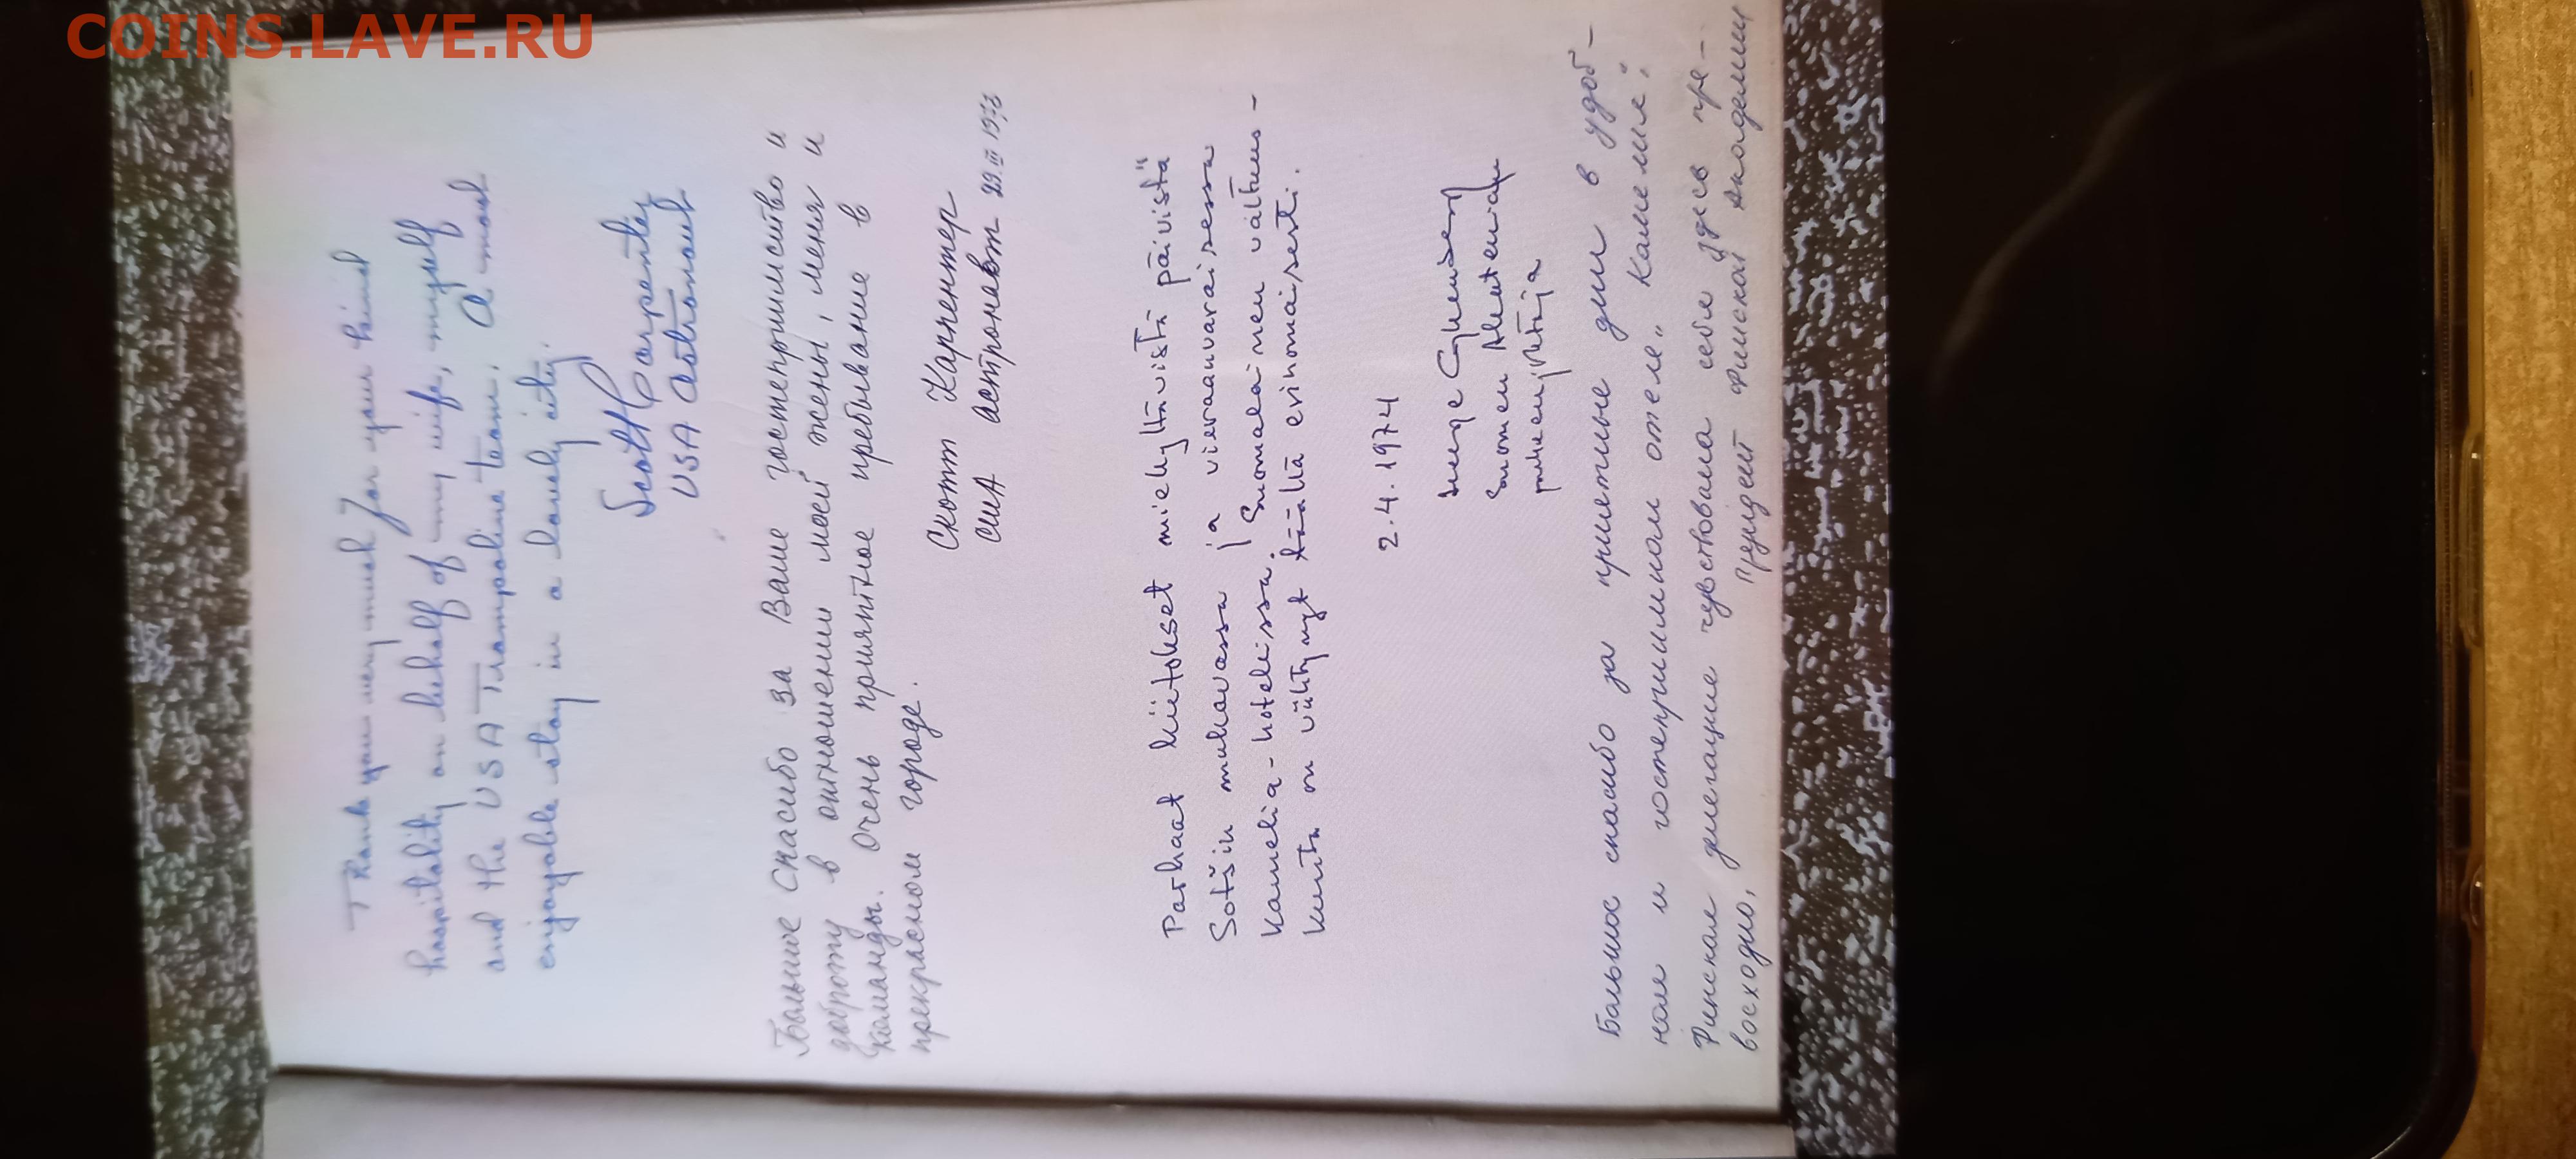 COINS.LAVE.RU
Thank you very much for your kind
hospitality on behalf of my wife, myself
and the USA Trampoline team. A most
enjoyable stay in a lovely city.
Scott Carpenter
USA Astronaut
Большое спасибо за Ваше гостеприимство и
доброту в отношении моей жены, меня и
команды. Очень приятное пребывание в
прекрасном городе.
Скотт Карпентер
США астронавт 29.III 1973
Parhaat kiitokset miellyttävistä päivistä
Sotšin mukavassa ja vieraanvaraisessa
Kamelia-hotelissa. Suomalainen valtuus-
kunta on viihtynyt täällä erinomaisesti.
2.4.1974
Suomen Akatemian
puheenjohtaja
Большое спасибо за приятные дни в удоб-
ном и гостеприимном отеле „Камелия".
Финская делегация чувствовала себя здесь пре-
восходно, Финской Академии